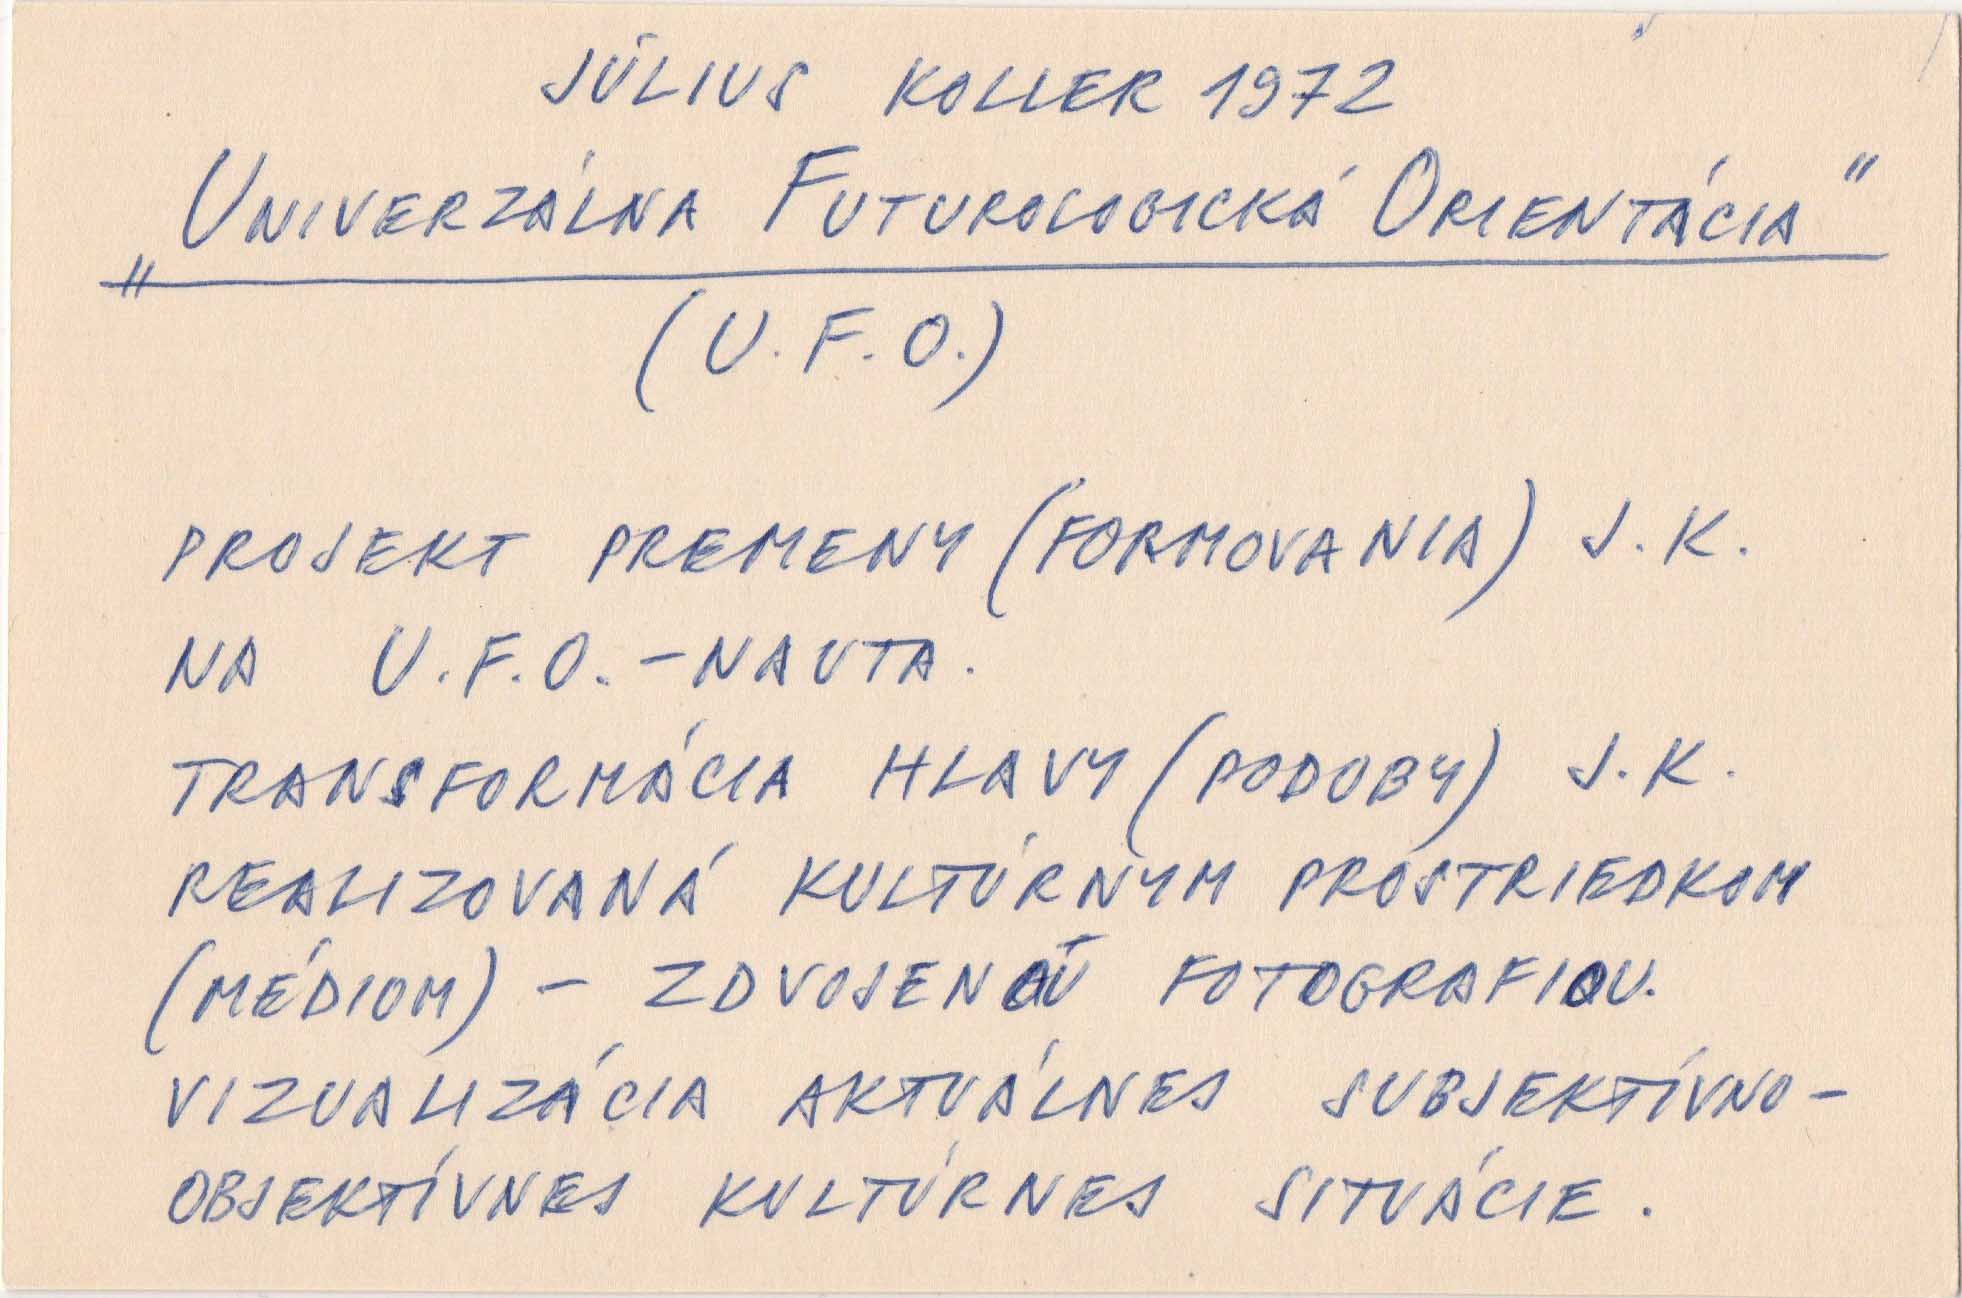 JÚLIUS KOLLER 1972
„Univerzálna Futurologická Orientácia“
(U.F.O.)
PROJEKT PREMENY (FORMOVANIA) J.K.
NA U.F.O.-NAUTA.
TRANSFORMÁCIA HLAVY (PODOBY) J.K.
REALIZOVANÁ KULTÚRNYM PROSTRIEDKOM
(MÉDIOM) - ZDVOJENOU FOTOGRAFIOU.
VIZUALIZÁCIA AKTUÁLNEJ SUBJEKTÍVNO-
OBJEKTÍVNEJ KULTÚRNEJ SITUÁCIE.